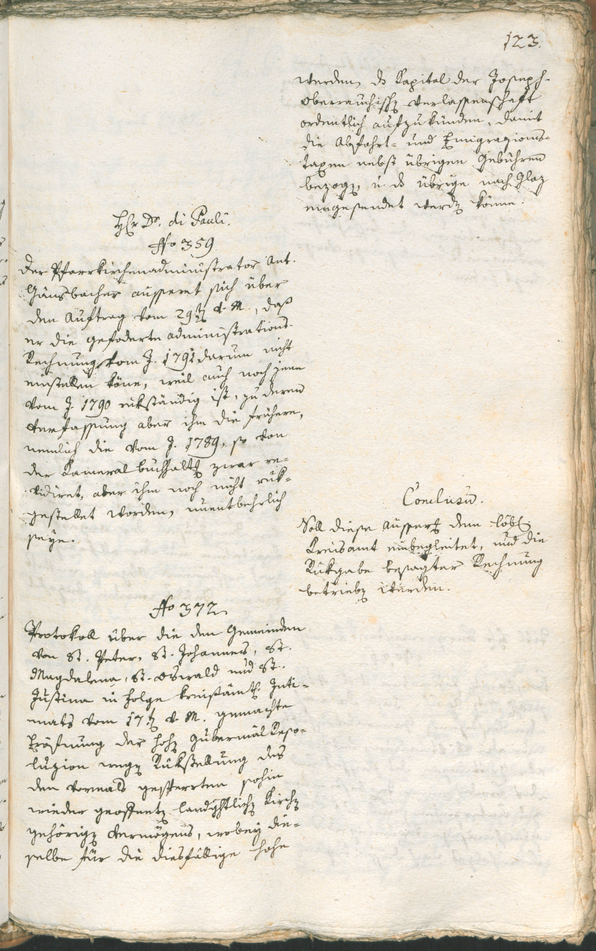 123.
werden, ds Kapital der Joseph-
Oberrauchisch Verlassenschaft
ordentlich aufzukünden, damit
die Abfahrt- und Emigrazions-
taxen nebst übrigen Gebühren
bezogn, u. ds übrige nach Glaz
eingesendet werdn könne.
Hr Dr. di Pauli.
No 359
Der Pfarrkirchenadministrator Ant.
Gänsbacher äussert sich über
den Auftrag vom 29tn d. M., daß
er die gefoderte Administrations-
Rechnung vom J. 1791 darum nicht
einstellen könne, weil auch noch jene
vom J. 1790 rükständig ist, zu deren
Verfassung aber ihm die frühere,
nemlich die vom J. 1789, so von
der Kameral Buchhaltg zwar re-
vidiret, aber ihm noch nicht rük-
gestellet worden, unentbehrlich
seye.
Conclusu.
Soll diese Äusserg dem Löbl
Kreisamt einbegleitet, und die
Rükgabe besagter Rechnung
betriebn werden.
No 372
Protokoll über die den Gemeinden
von St. Peter, St. Johannes, St.
Magdalena, St. Oswald und St.
Justina in Folge kreisämtl. Inti-
mats vom 17tn d. M. gemachte
Eröfnung der hohn Gubernial Reso-
luzion wegn Rükstellung des
den vormals gesperrten, sohin
wieder geöffnetn Kirchn
gehörign Vermögens, wobey die-
selbe für die diesfällige hohe